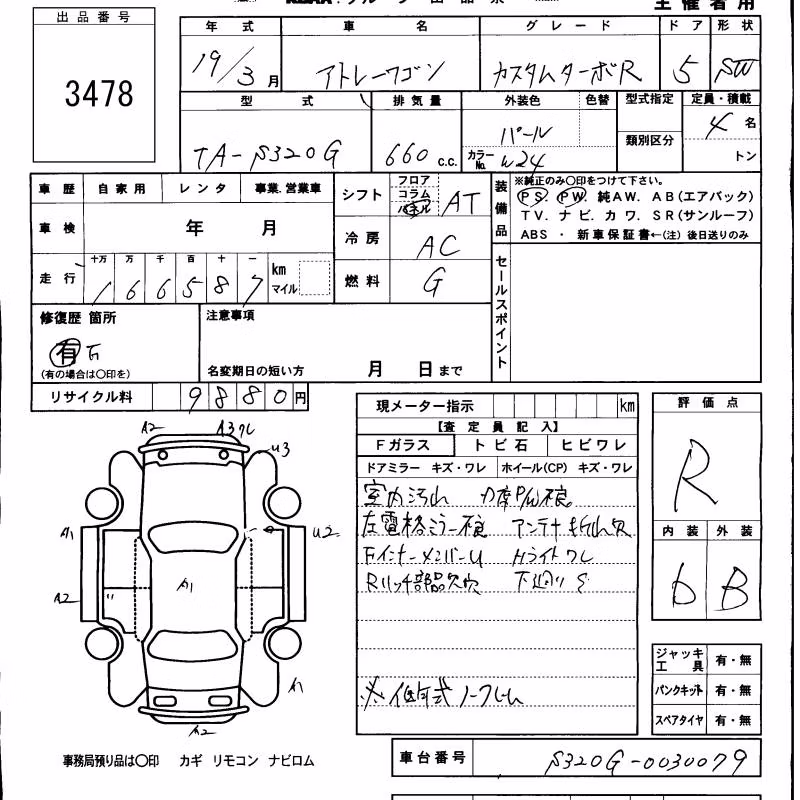 出品番号
3478
主催者用
年式 車名 グレード ドア 形状
19/3月 アトレーワゴン カスタムターボR 5 SW
型式 排気量 外装色 色替 型式指定 定員・積載
TA-S320G 660 c.c. パール カラーNo. W24 類別区分 4名 トン
車歴 自家用 レンタ 事業.営業車
車検 年 月
走行 十万 万 千 百 十 一 km マイル
166587
シフト フロア コラム パネル AT
冷房 AC
燃料 G
装備品 ※純正のみ〇印をつけて下さい。
PS. PW. 純AW. AB(エアバック)
TV. ナビ. カワ. SR(サンルーフ)
ABS ・ 新車保証書←(注)後日送りのみ
セールスポイント
修復歴 箇所
有
(有の場合は〇印を)
注意事項
名変期日の短い方 月 日まで
リサイクル料 9880円
現メーター指示 km
【査定員記入】
Fガラス トビ石 ヒビワレ
ドアミラー キズ・ワレ ホイール(CP) キズ・ワレ
室内汚れ
アンテナ折れ欠
FインナーメンバーU Hライトワレ
下廻りS
※低年式ノークレーム
評価点
R
内装 外装
D B
ジャッキ工具 有・無
パンクキット 有・無
スペアタイヤ 有・無
A2 A3ワレ
U3
A1 U2
A1
A2
A1
A2
事務局預り品は〇印 カギ リモコン ナビロム
車台番号 S320G-0030079